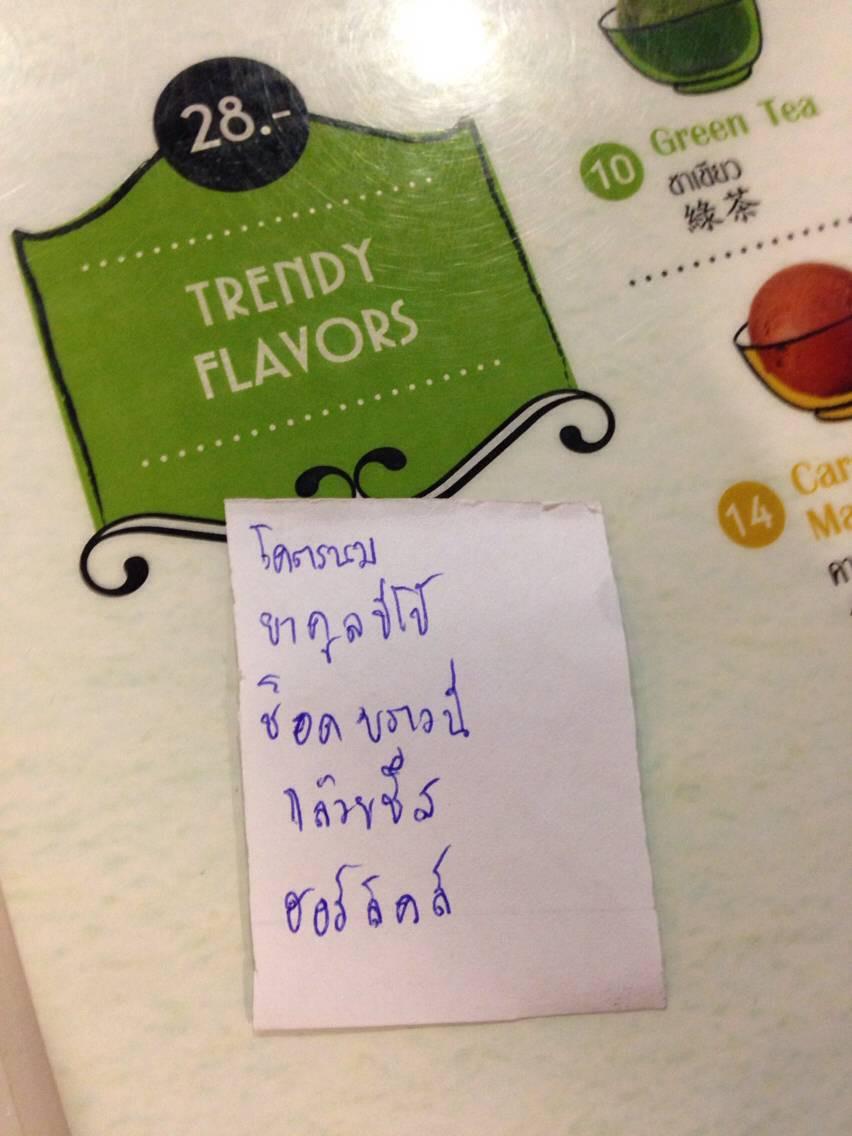 28.-
TRENDY
FLAVORS
10 Green Tea
ชาเขียว
綠茶
14 Car
Ma
คา
โคตรนม
ยาคูลปีโป้
ช็อคบราวนี่
กล้วยชีส
ฮอร์ลิคส์